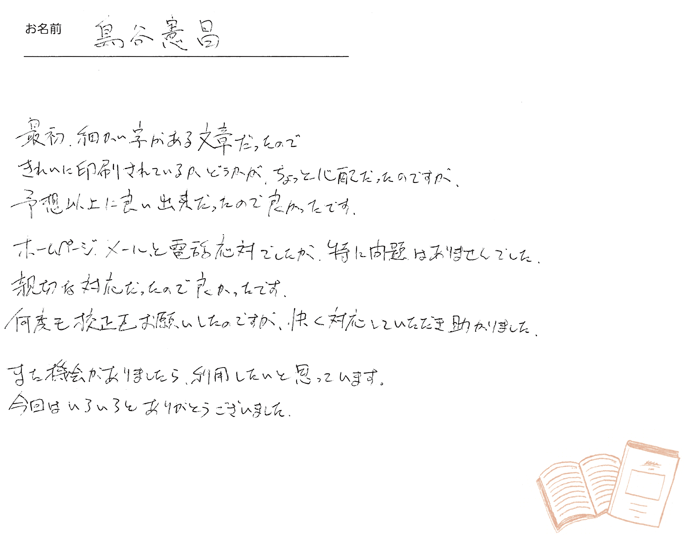 お名前 鳥谷憲昌
最初、細かい字がある文章だったので
きれいに印刷されているかどうかが、ちょっと心配だったのですが、
予想以上に良い出来だったので良かったです。
ホームページ、メールと電話応対でしたが、特に問題はありませんでした。
親切な対応だったので良かったです。
何度も校正をお願いしたのですが、快く対応していただき助かりました。
また機会がありましたら、利用したいと思っています。
今回はいろいろとありがとうございました。